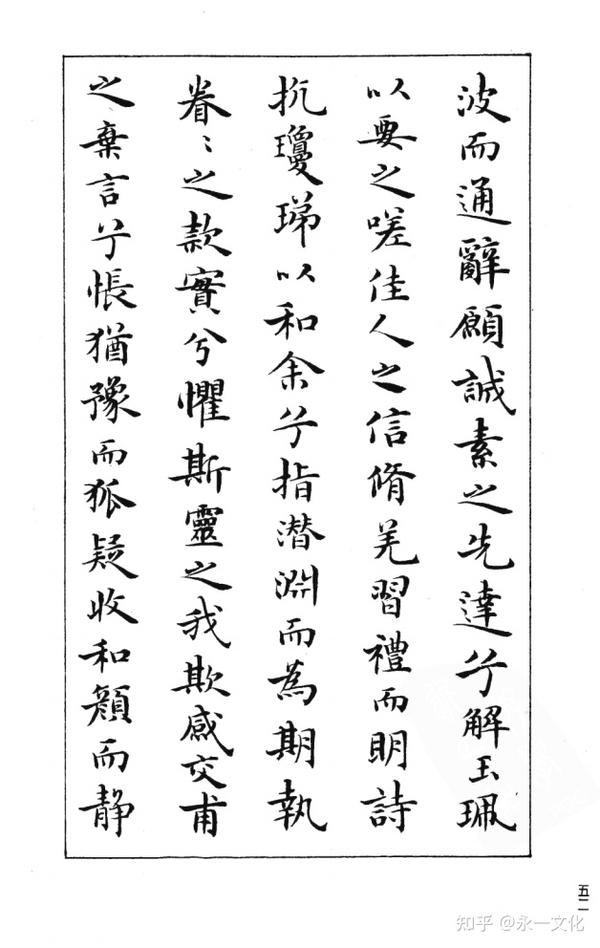 波而通辭願誠素之先達兮解玉珮
以要之嗟佳人之信脩羌習禮而明詩
抗瓊珶以和余兮指潛淵而為期執
眷〻之款實兮懼斯靈之我欺感交甫
之棄言兮悵猶豫而狐疑收和顏而静
五二
知乎 @永一文化